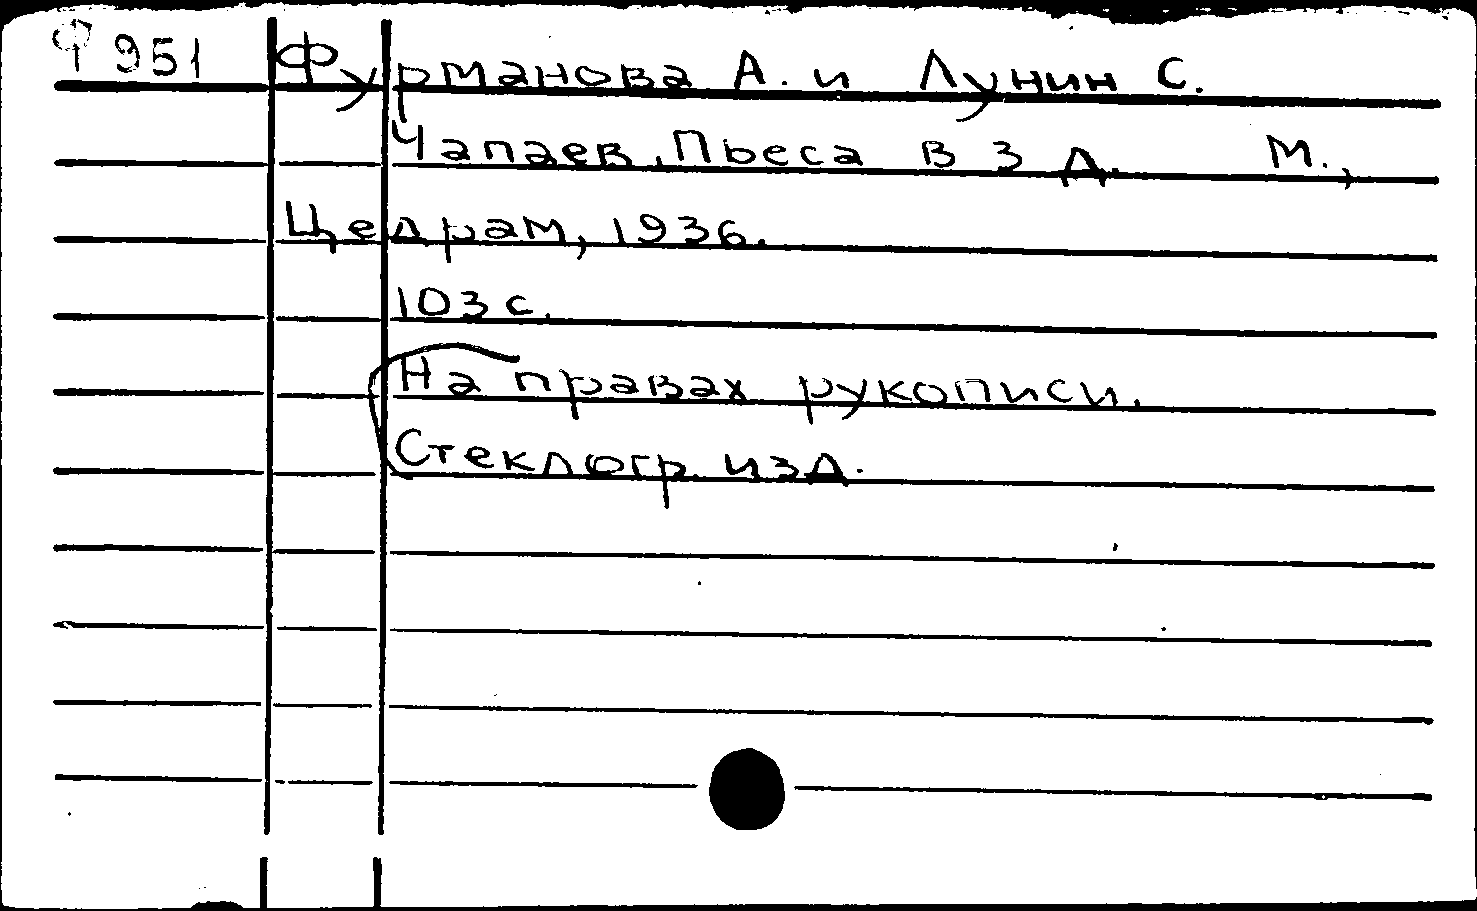 Ф 951 Фурманова А. и Лунин С.
Чапаев. Пьеса в 3 д. М.,
Цедрам, 1936.
103 с.
На правах рукописи.
Стеклогр. изд.